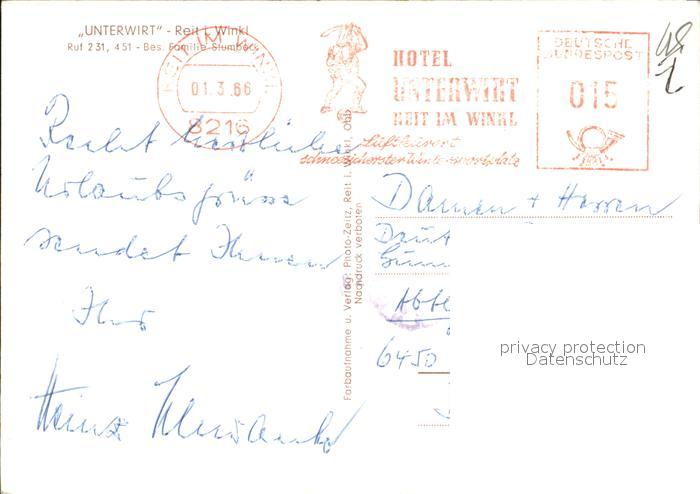 „UNTERWIRT" - Reit i. Winkl
Ruf 231, 451 - Bes. Familie Stumbeck
REIT IM WINKL
01.3.66
8216
HOTEL
UNTERWIRT
REIT IM WINKL
Luftkurort
schneesicherster Wintersportplatz
DEUTSCHE
BUNDESPOST
015
Recht herzliche
Urlaubsgrüsse
sendet Ihnen
Ihr
Heinz
Farbaufnahme u. Verlag: Photo-Zeitz, Reit i. Winkl, Obb.
Nachdruck verboten
Damen + Herren
6450
privacy protection
Datenschutz